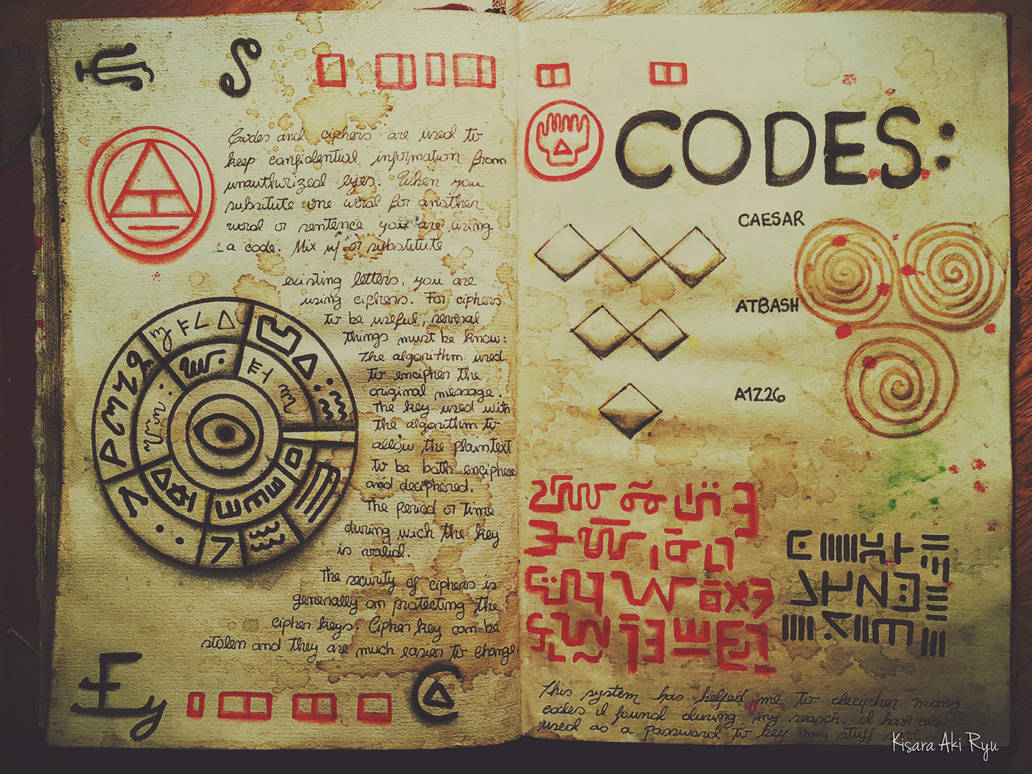 Codes and ciphers are used to
keep confidential information from
unauthurized eyes. When you
subsitute one word for another
word or sentence you are using
a code. Mix w/ or substitute
existing letters, you are
using ciphers. For ciphers
to be useful, several
things must be know:
The algorithm used
to encipher the
original message.
The key used with
the algorithm to
allow the plaintext
to be both enciphere
and deciphered.
The period or time
during wich the key
is valid.
The security of ciphers is
generally on protecting the
cipher keys. Cipher key can be
stolen and they are much easier to change.
CODES:
CAESAR
ATBASH
A1Z26
This system has helped me to decipher many
codes I found during my search. I have also
used as a password to key my stuff
Kisara Aki Ryu